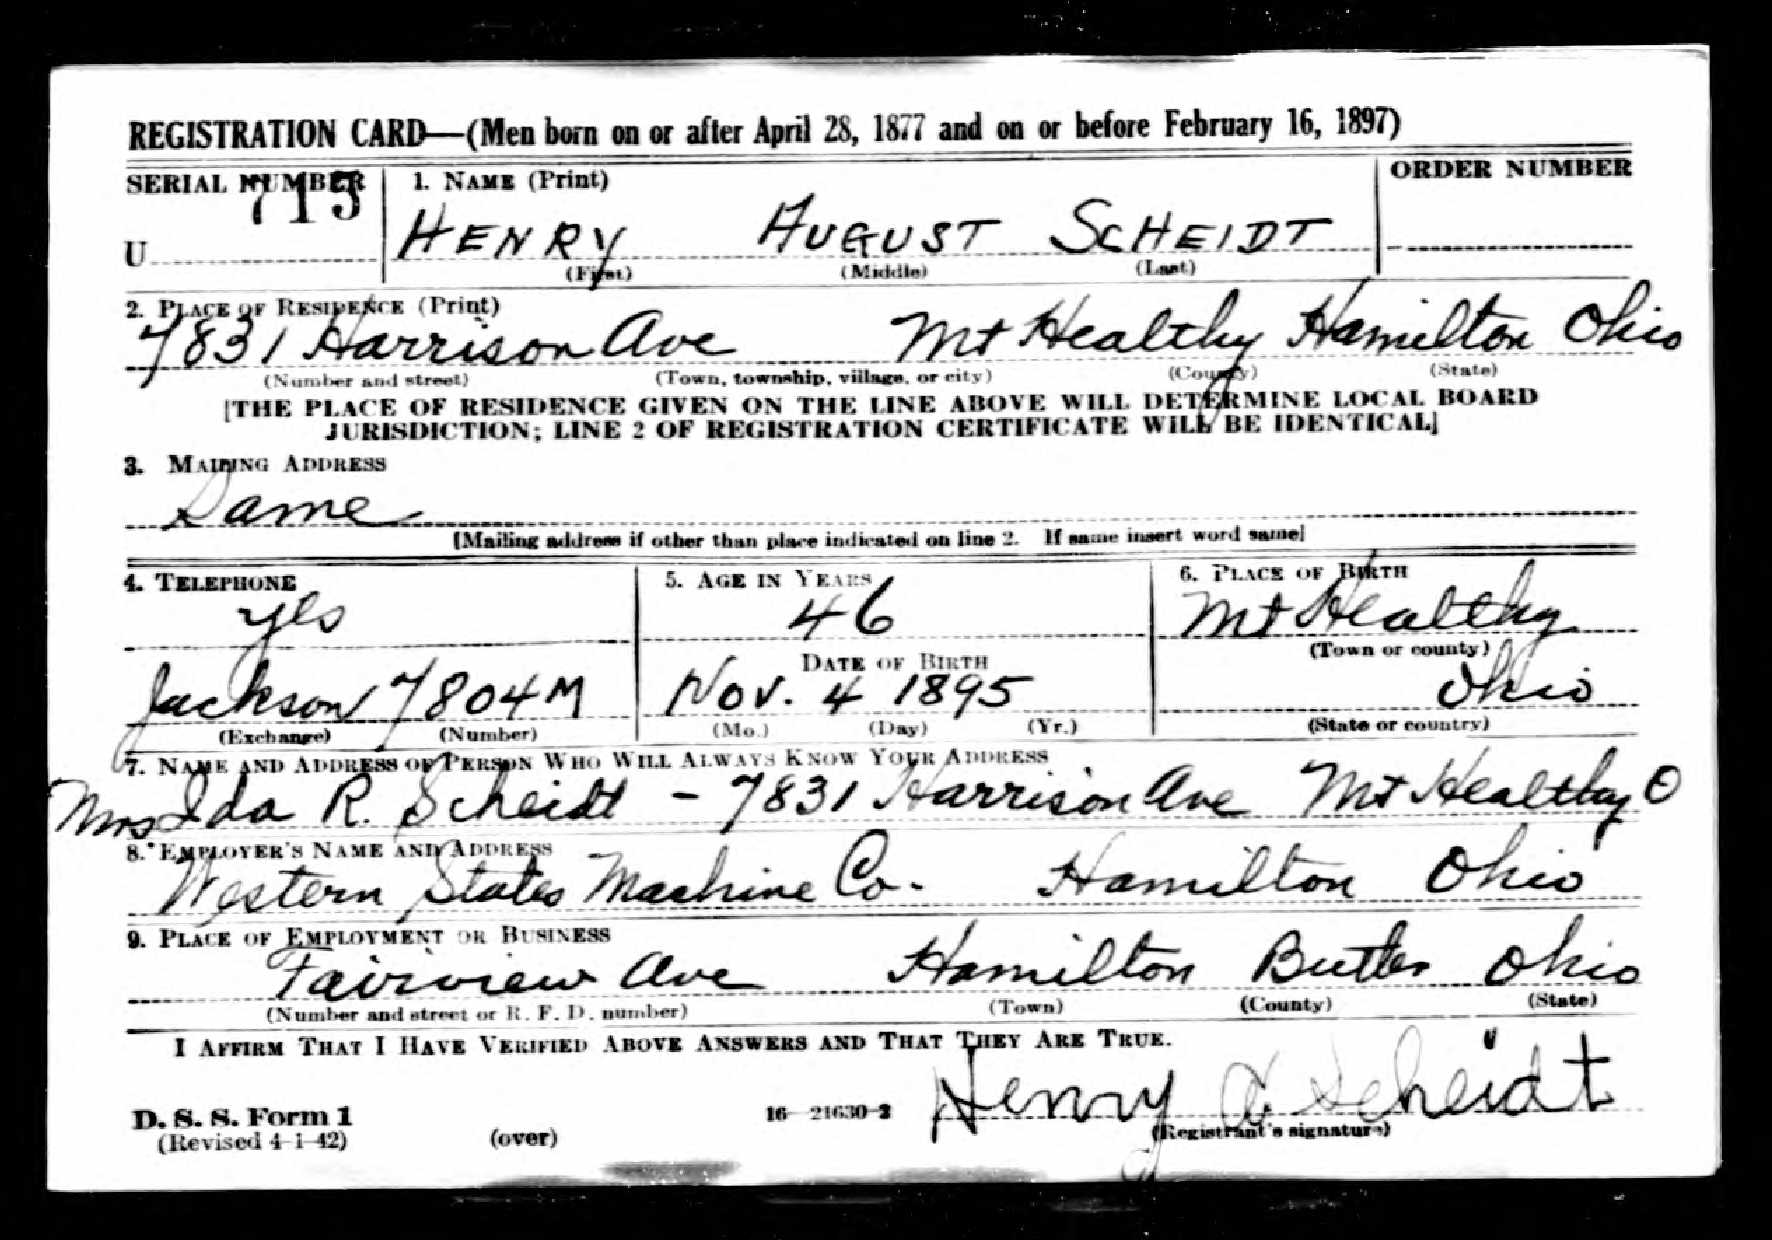 REGISTRATION CARD—(Men born on or after April 28, 1877 and on or before February 16, 1897)
SERIAL NUMBER 1. NAME (Print) ORDER NUMBER
715
U HENRY AUGUST SCHEIDT
(First) (Middle) (Last)
2. PLACE OF RESIDENCE (Print)
7831 Harrison Ave Mt Healthy Hamilton Ohio
(Number and street) (Town, township, village, or city) (County) (State)
[THE PLACE OF RESIDENCE GIVEN ON THE LINE ABOVE WILL DETERMINE LOCAL BOARD
JURISDICTION; LINE 2 OF REGISTRATION CERTIFICATE WILL BE IDENTICAL]
3. MAILING ADDRESS
Same
[Mailing address if other than place indicated on line 2. If same insert word same]
4. TELEPHONE 5. AGE IN YEARS 6. PLACE OF BIRTH
yes 46 Mt Healthy
DATE OF BIRTH (Town or county)
Jackson 7804M Nov. 4 1895 Ohio
(Exchange) (Number) (Mo.) (Day) (Yr.) (State or country)
7. NAME AND ADDRESS OF PERSON WHO WILL ALWAYS KNOW YOUR ADDRESS
Mrs Ida R. Scheidt - 7831 Harrison Ave Mt Healthy O
8. EMPLOYER'S NAME AND ADDRESS
Western States Machine Co. Hamilton Ohio
9. PLACE OF EMPLOYMENT OR BUSINESS
Fairview Ave Hamilton Butler Ohio
(Number and street or R. F. D. number) (Town) (County) (State)
I AFFIRM THAT I HAVE VERIFIED ABOVE ANSWERS AND THAT THEY ARE TRUE.
Henry A Scheidt
D. S. S. Form 1 16—21630-2
(Revised 4-1-42) (over) (Registrant's signature)